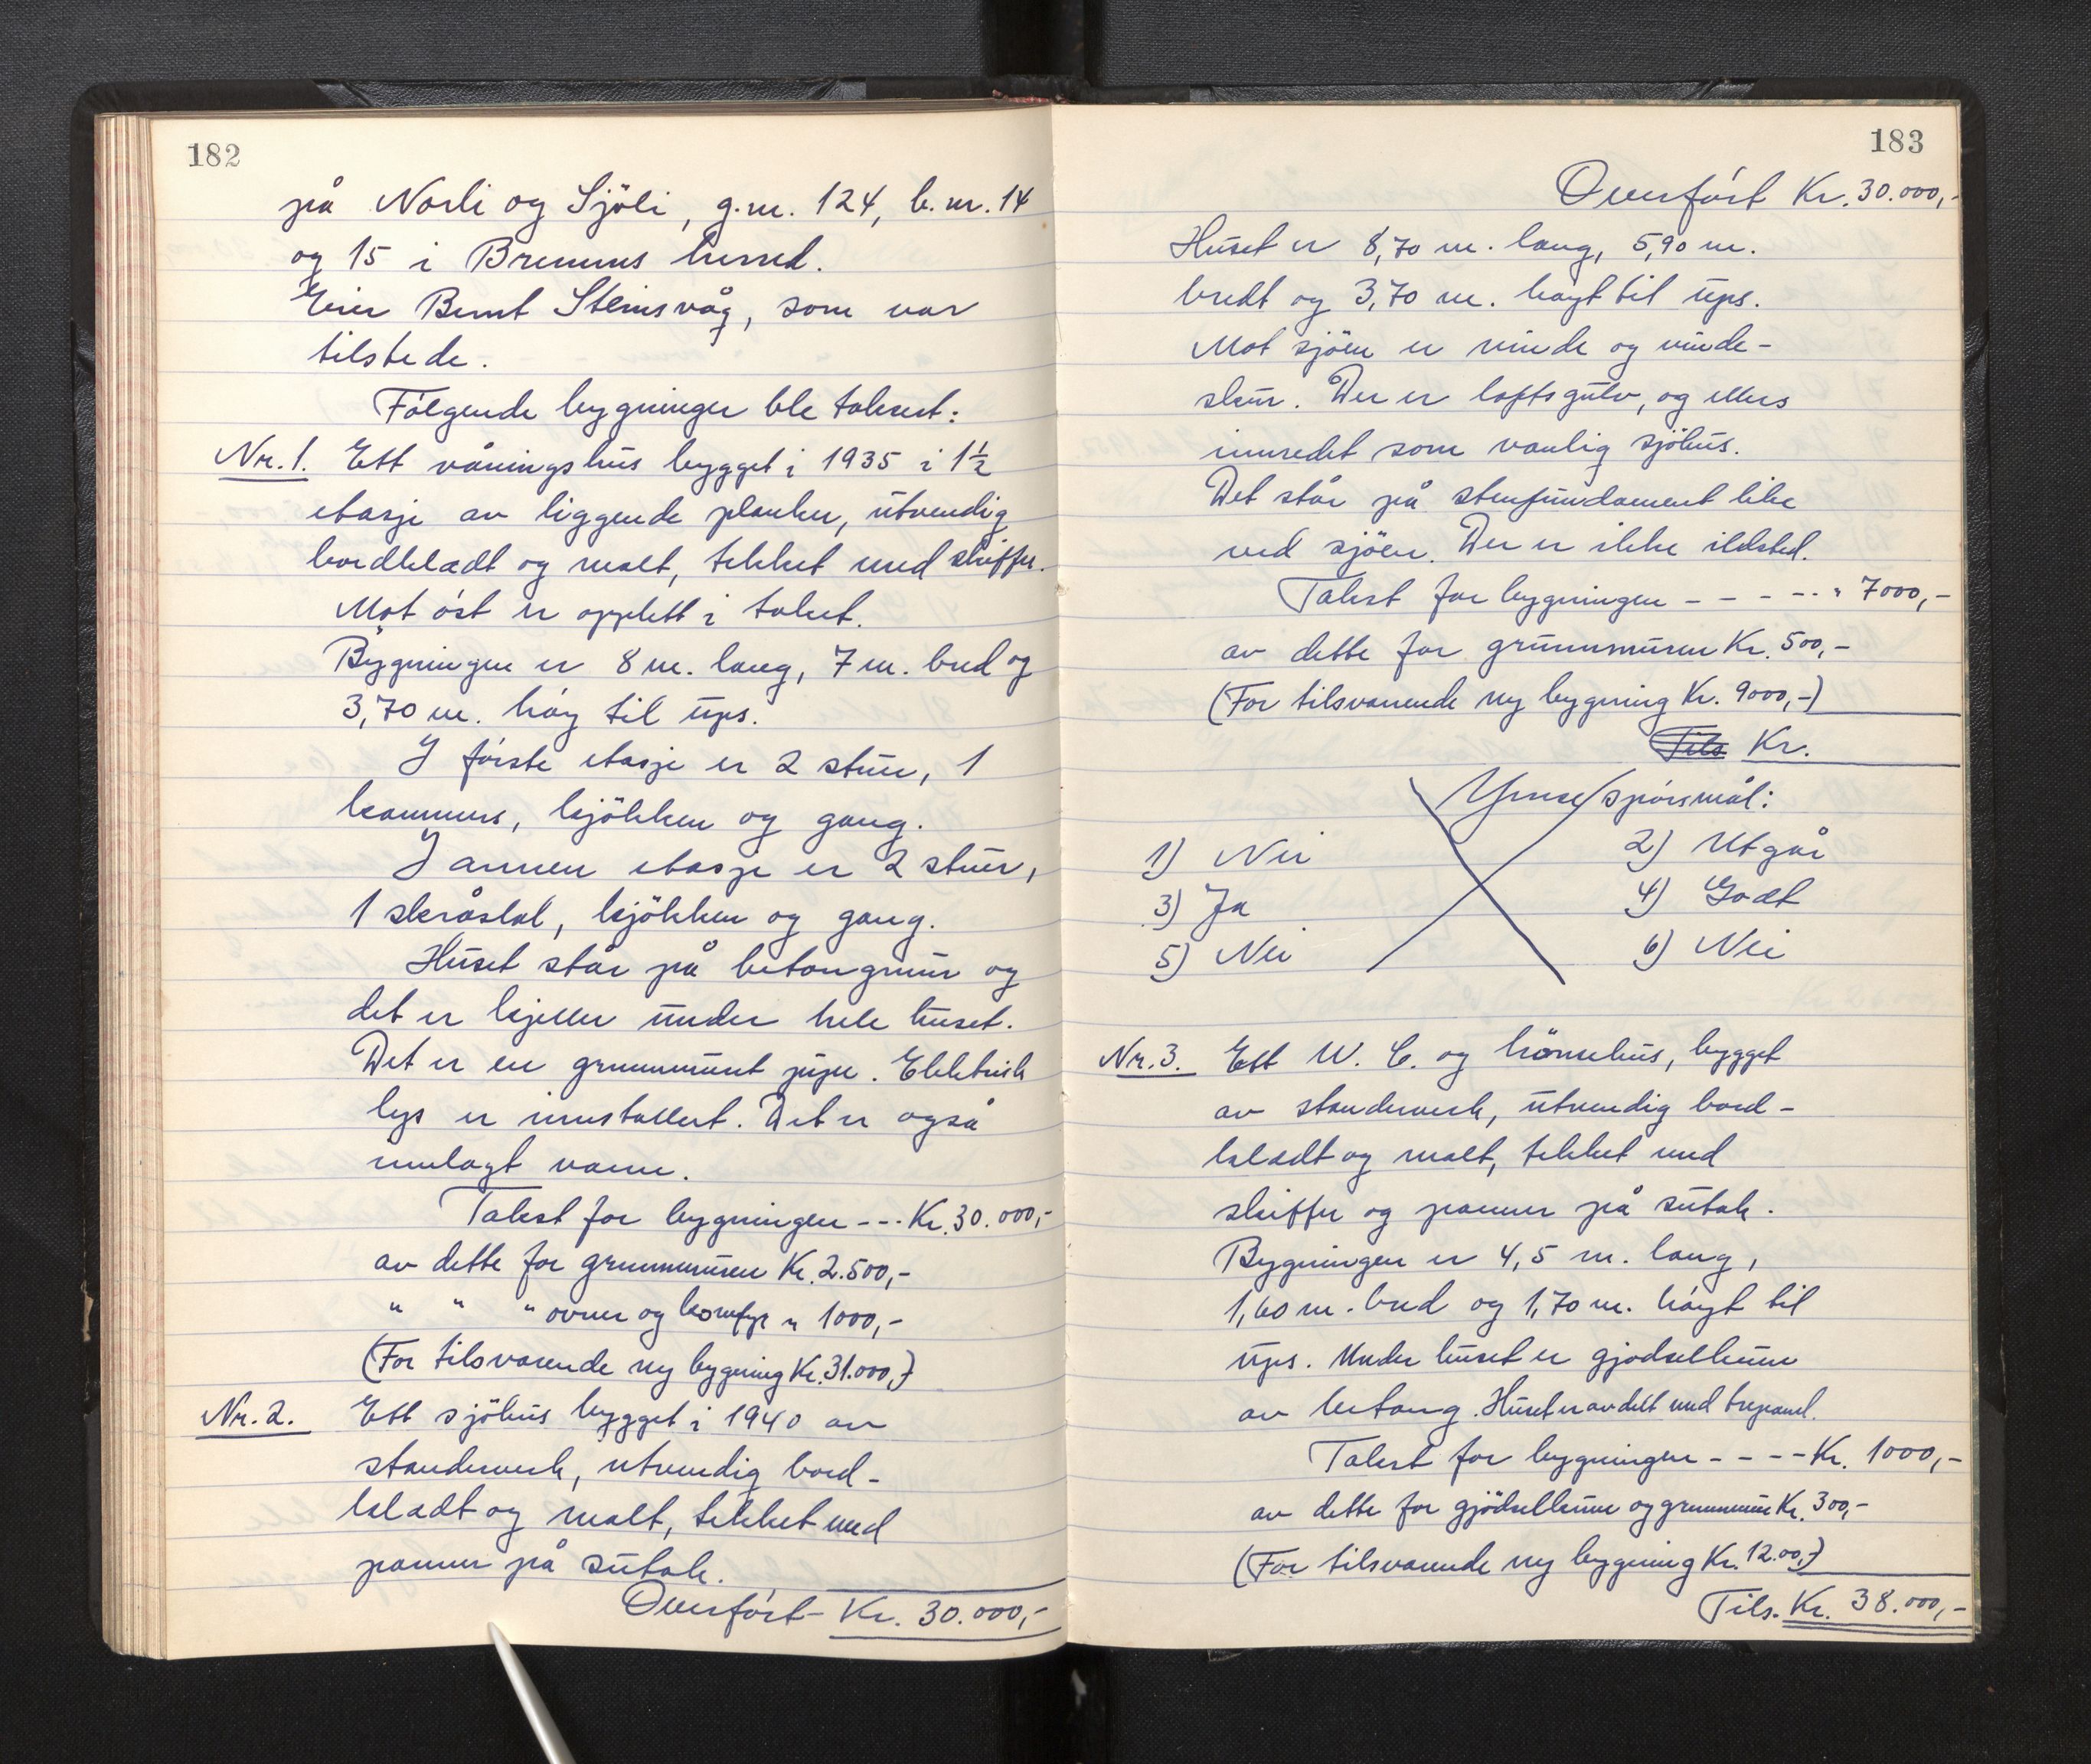 182
på Norli og Sjöli, g.nr. 124, b.nr. 14
og 15 i Bremnes herred.
Eier Bernt Steinsvåg, som var
tilstede.
Følgende bygninger ble taksert:
Nr. 1. Ett våningshus bygget i 1935 i 1½
etasje av liggende planker, utvendig
bordkledt og malt, tekket med skiffer.
Mot øst er opplett i taket.
Bygningen er 8 m. lang, 7 m. bred og
3,70 m. høy til ups.
I første etasje er 2 stuer, 1
kammers, kjökken og gang.
I annen etasje er 2 stuer,
1 skråstak, kjökken og gang.
Huset står på betongmur og
det er kjeller under hele huset.
Det er en grunnmurt pipe. Elektrisk
lys er innstallert. Det er også
innlagt vann.
Takst for bygningen --- Kr. 30.000,-
av dette for grunnmuren Kr. 2.500,-
" " " ovner og komfyr " 1000,-
(For tilsvarende ny bygning Kr. 31.000,-)
Nr. 2. Ett sjöhus bygget i 1940 av
standerverk, utvendig bord-
kledt og malt, tekket med
panner på sutak.
Overført - Kr. 30.000,-
183
Overført Kr. 30.000,-
Huset er 8,70 m. lang, 5,90 m.
bredt og 3,70 m. høyt til ups.
Mot sjöen er vinde og vinde-
skur. Der er loftsgulv, og ellers
innredet som vanlig sjöhus.
Det står på stenfundament like
ved sjöen. Der er ikke ildsted.
Takst for bygningen - - - - - " 7000,-
av dette for grunnmuren Kr. 500,-
(For tilsvarende ny bygning Kr. 9000,-)
Tils Kr.
Ymse spørsmål:
1) Nei 2) Utgår
3) Ja 4) Godt
5) Nei 6) Nei
Nr. 3. Ett W. C. og hönsehus, bygget
av standerverk, utvendig bord-
kledt og malt, tekket med
skiffer og panner på sutak.
Bygningen er 4,5 m. lang,
1,60 m. bred og 1,70 m. høyt til
ups. Under huset er gjødselkum
av betong. Huset er avdelt med trepanel.
Takst for bygningen - - - - Kr. 1000,-
av dette for gjödselkum og grunnmur Kr. 300,-
(For tilsvarende ny bygning Kr. 12.00,-)
Tils. Kr. 38.000,-